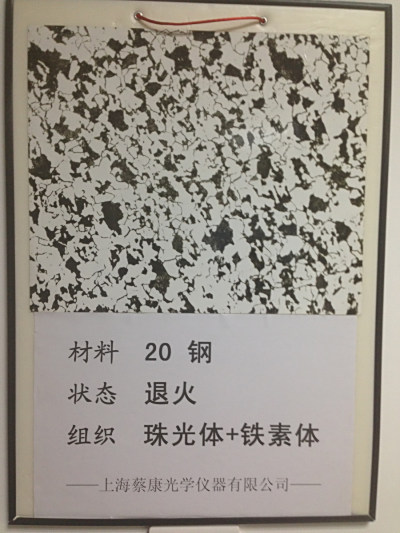 材料 20 钢
状态 退火
组织 珠光体+铁素体
——上海蔡康光学仪器有限公司——